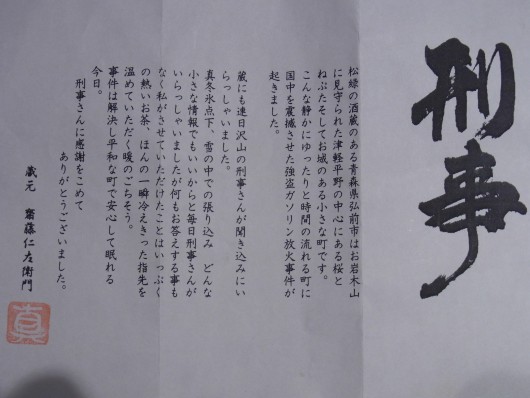 刑事
松緑の酒蔵のある青森県弘前市はお岩木山
に見守られた津軽平野の中心にある桜と
ねぷたそしてお城のある小さな町です。
こんな静かにゆったりと時間の流れる町に
国中を震撼させた強盗ガソリン放火事件が
起きました。
蔵にも連日沢山の刑事さんが聞き込みにい
らっしゃいました。
真冬氷点下、雪の中での張り込み どんな
小さな情報でもいいからと毎日刑事さんが
いらっしゃいましたが何もお答えする事も
なく私がさせていただけたことはいっぷく
の熱いお茶、ほんの一瞬冷えきった指先を
温めていただく暖のごちそう。
事件は解決し平和な町で安心して眠れる
今日。
刑事さんに感謝をこめて
ありがとうございました。
蔵元 齋藤仁左衛門
真